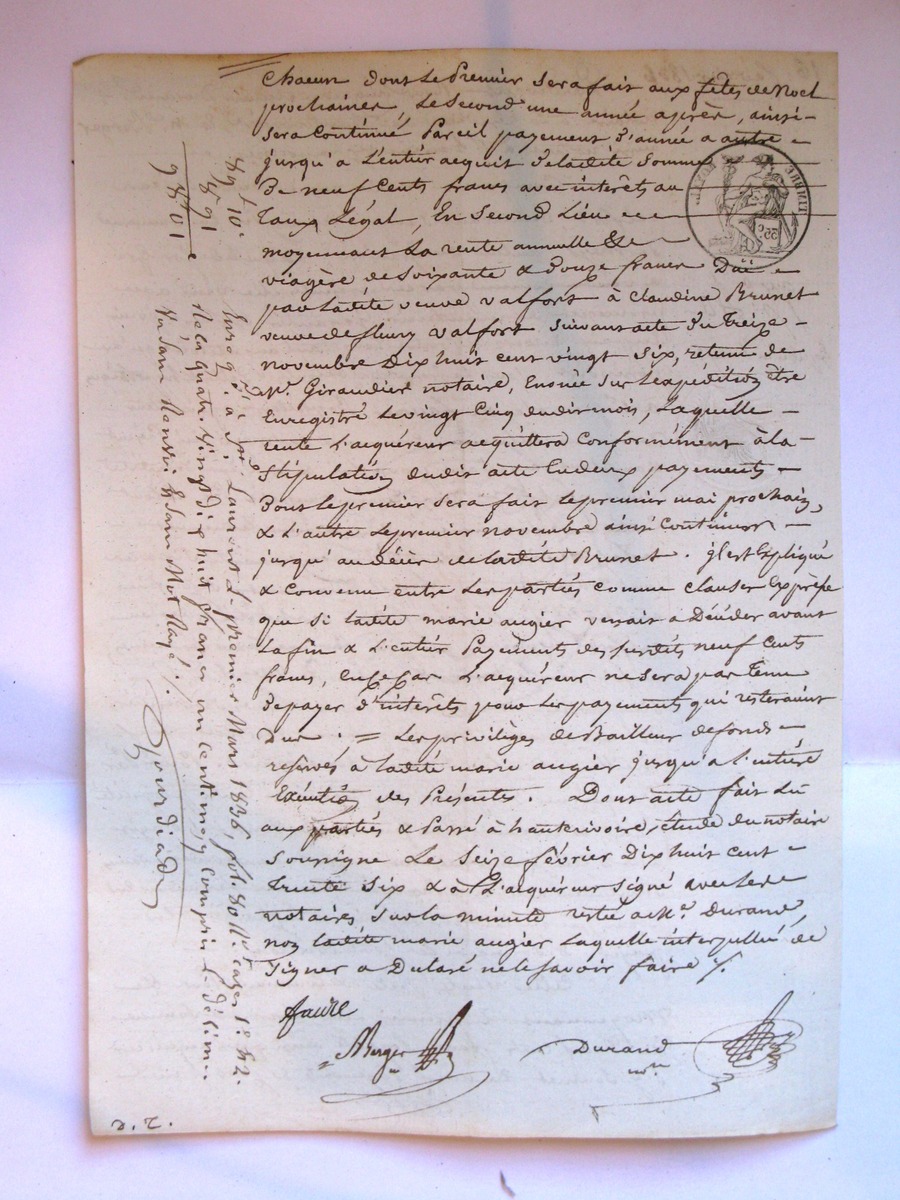 Chacun dont le Premier sera fait aux fêtes de Noel
prochaines, le second une année après, ainsi
sera Continué Pareil payement d'année a autre
jusqu'a L'entier acquit de ladite somme
De neuf Cents francs avec intérêts au
Taux Légal, En second Lieu
moyennant La rente annuelle &
viagère de soixante & douze francs Due
par ladite veuve valfort à Claudine Brunet
veuve de fleury valfort suivant acte du Treize
novembre Dix huit cent vingt six, retenu de
Me. Giraudier notaire, Enoncé sur l'expédition être
Enregistré le vingt Cinq dudit mois, Laquelle
rente L'acquéreur acquittera Conformément à la
Stipulation dudit acte En deux payements
Dont le premier sera fait le premier mai prochain
& L'autre le premier novembre ainsi Continuer
jusqu'au décès de ladite Brunet. il est Expliqué
& Convenu entre les parties comme clause Expresse
que si ladite marie augier venait a Décéder avant
la fin & L'entier Payements des susdits neuf Cents
francs, en ce cas L'acquéreur ne sera pas tenu
De payer d'intérêts pour les payements qui resteraient
Dus. = Les privilèges de Bailleur de fonds
réservés à ladite marie augier jusqu'a l'entière
Exécution des Présentes. Dont acte fait Lu
aux parties & Passé à hauterivoire, étude du notaire
soussigné Le seize février Dix huit cent
trente six & à L'acquéreur signé avec les
notaires sur la minute restée a Me. Durand,
non ladite marie augier Laquelle interpellée de
signer a Déclaré ne le savoir faire /.
faure
Berger
Durand
nore
TIMBRE ROYAL
35c
89f 10c
8 91
98 01
Enregé. à St. Laurent le premier Mars 1836, fol. 80 Vo. cazes 1e. & 2.
Reçu quatre vingt dix huit francs un centime y compris le décime
Vu sans Renvoi & sans Mot Rayé./.
Gourdiad